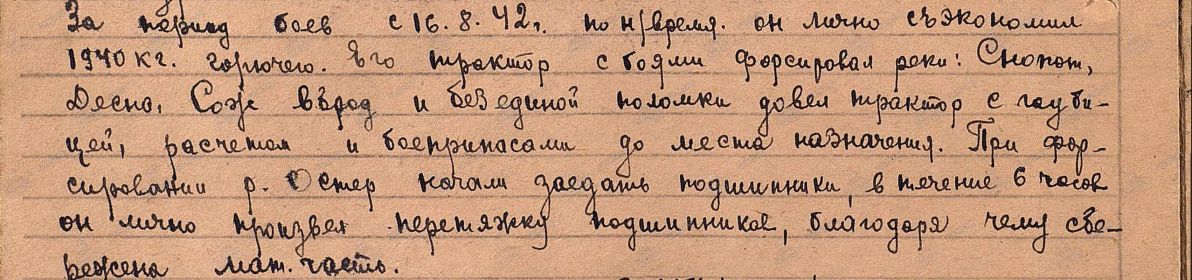 За период боев с 16.8.42г. по н/время. он лично съэкономил
1940 кг. горючего. Его трактор с боями форсировал реки: Снопот,
Десна, Сож вброд и без единой поломки довел трактор с гауби-
цей, расчетом и боеприпасами до места назначения. При фор-
сировании р. Остер начали заедать подшипники, в течение 6 часов
он лично произвел перетяжку подшипников, благодаря чему сбе-
режена мат. часть.